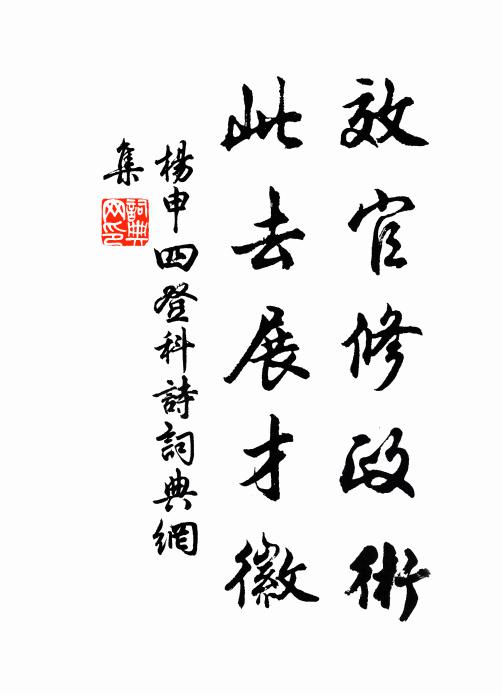 效官修政術
此去展才徽
楊申四登科詩詞典網
集
詞典網印